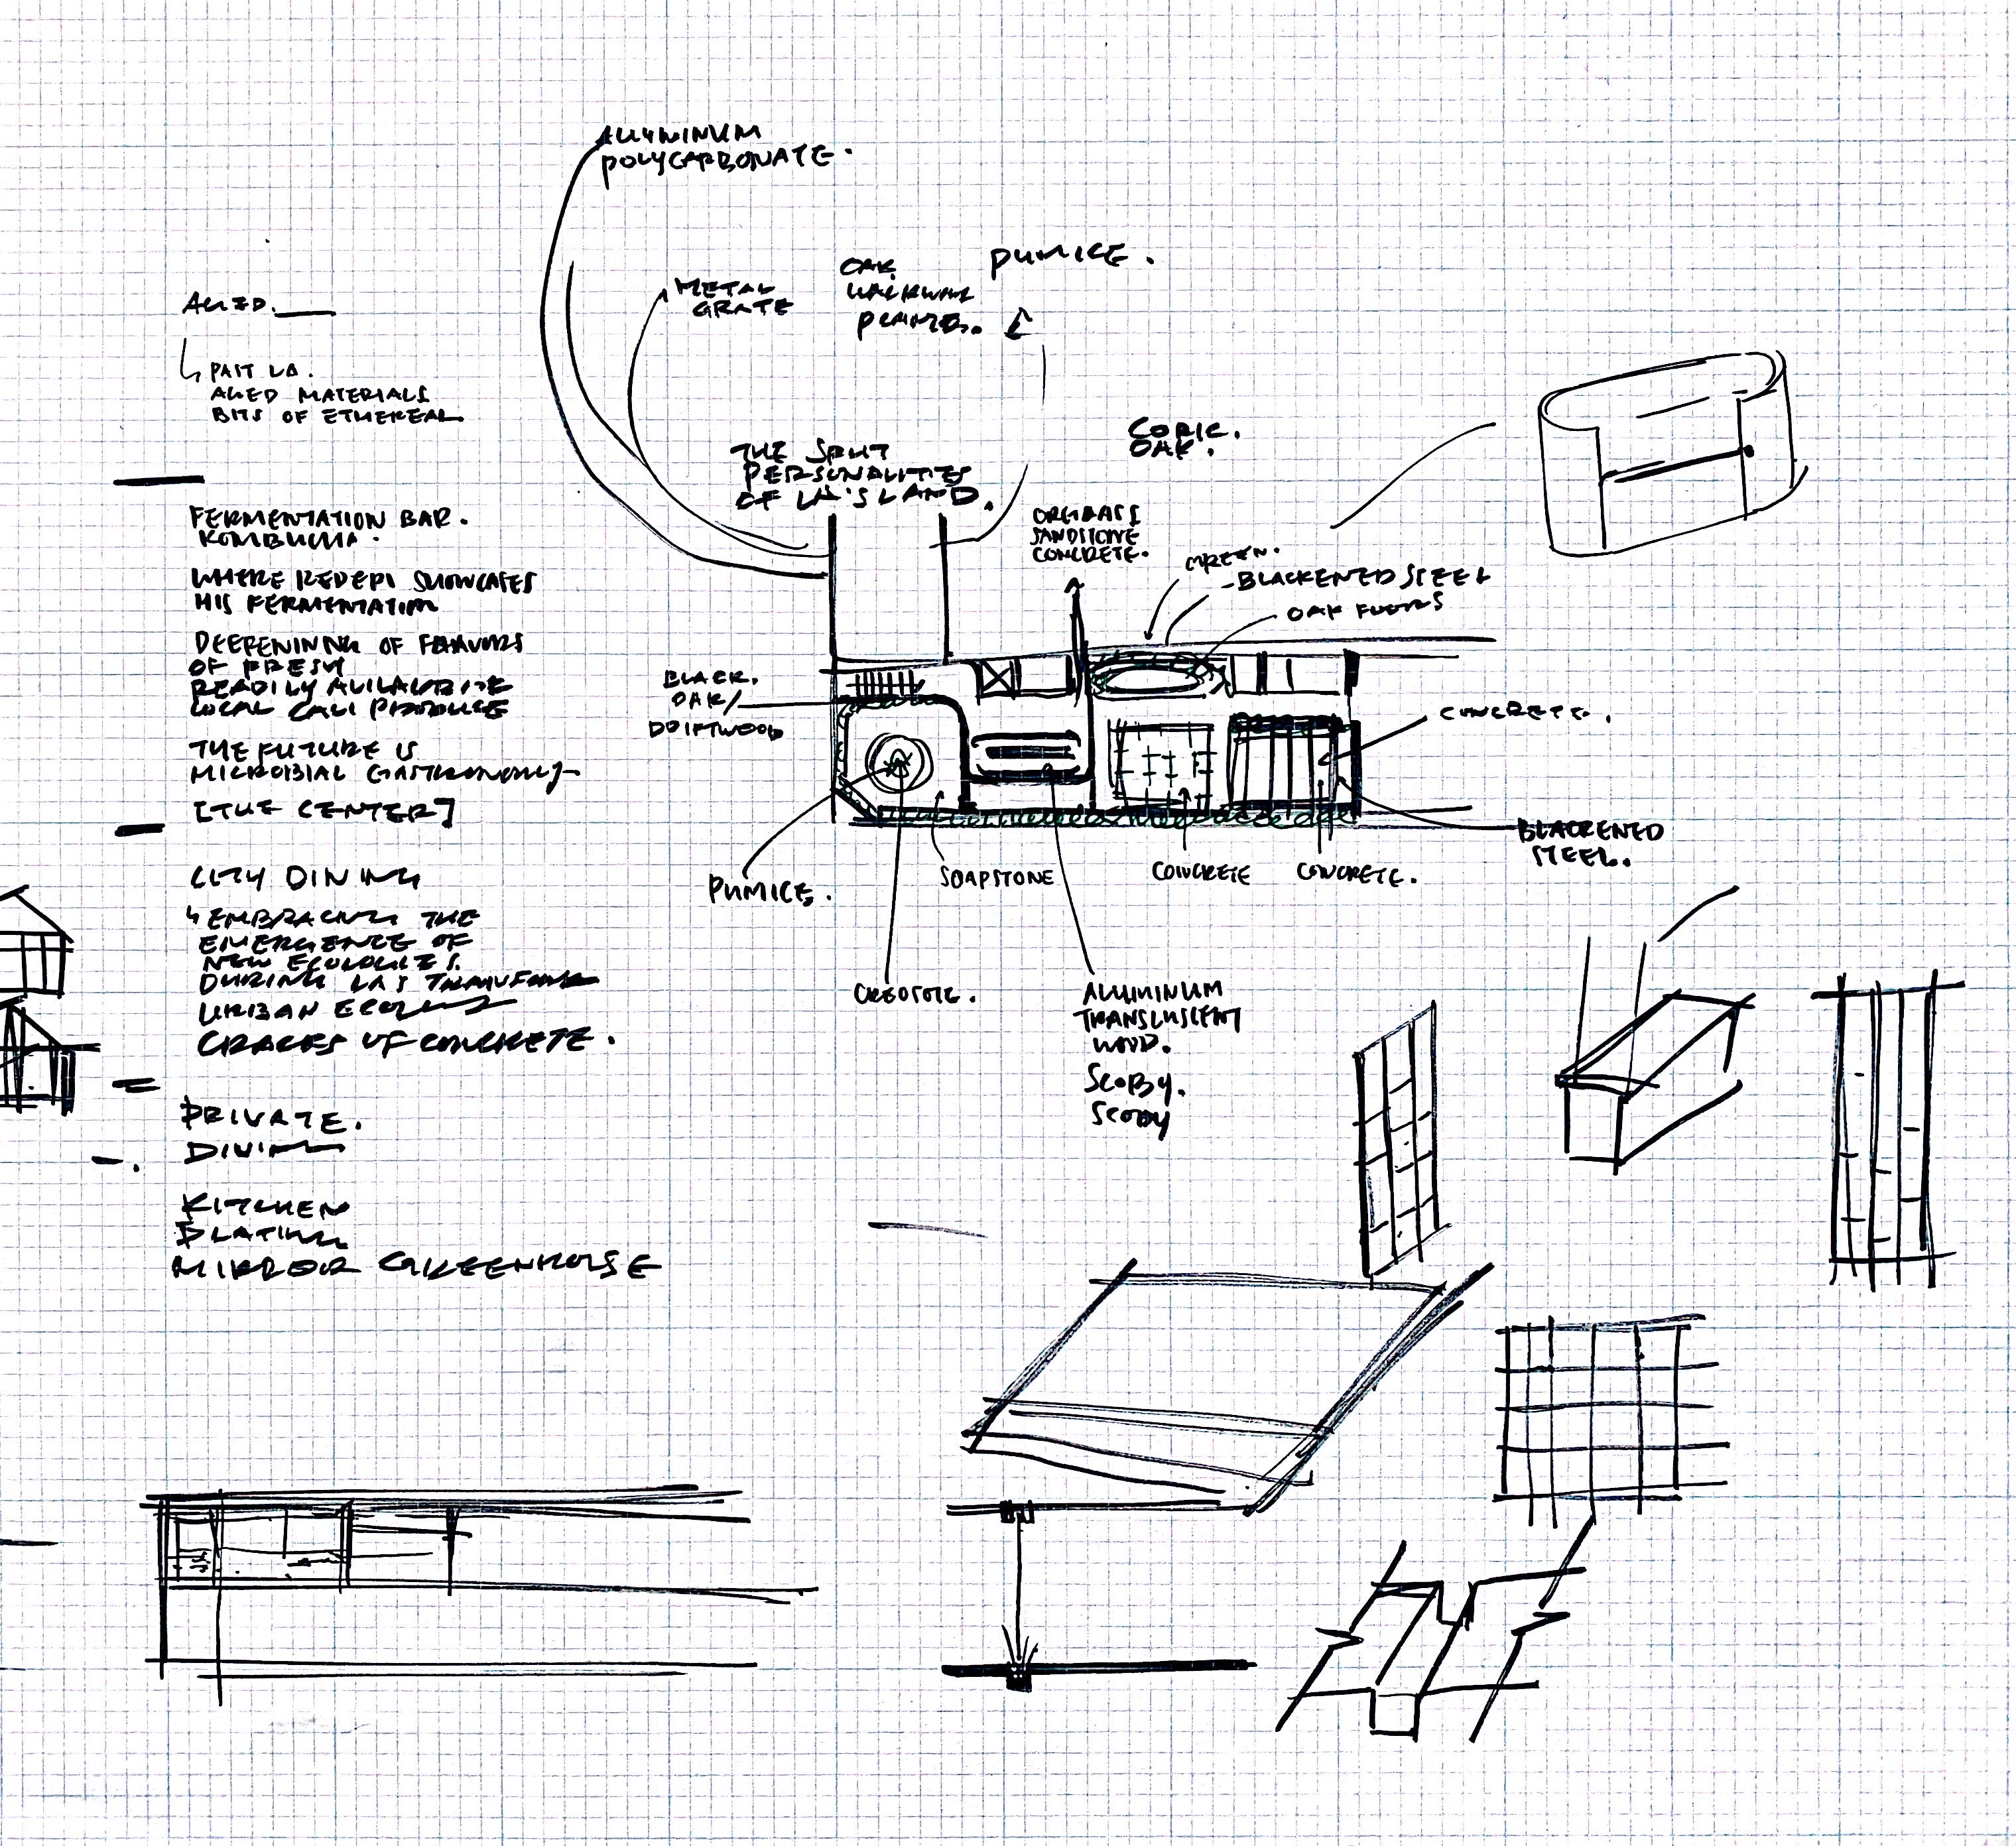 ALUMINUM
POLYCARBONATE.
METAL
GRATE
OAK
PUMICE.
AGED.
PAST LA.
AGED MATERIALS
BITS OF ETHEREAL
THE SPLIT
PERSONALITIES
OF LA'S LAND.
OAK.
SANDSTONE
CONCRETE.
GREEN.
-BLACKENED STEEL
OAK
FERMENTATION BAR.
KOMBUCHA.
WHERE REDEPI SHOWCASES
HIS FERMENTATION
DEEPENING OF FLAVORS
OF FRESH
READILY AVAILABLE
LOCAL CALI PRODUCE
THE FUTURE IS
MICROBIAL GASTRONOMY
[THE CENTER]
BLACK.
OAK/
DRIFTWOOD
CONCRETE.
BLACKENED
STEEL.
PUMICE.
SOAPSTONE
CONCRETE
CONCRETE.
CITY DINING
EMBRACING THE
EMERGENCE OF
NEW ECOLOGIES.
DURING LA'S
URBAN
CRACKS OF CONCRETE.
CREOSOTE.
ALUMINUM
TRANSLUSCENT
WOOD.
SCOBY.
SCOBY
PRIVATE.
DINING
KITCHEN
PLATING
MIRROR GREENHOUSE